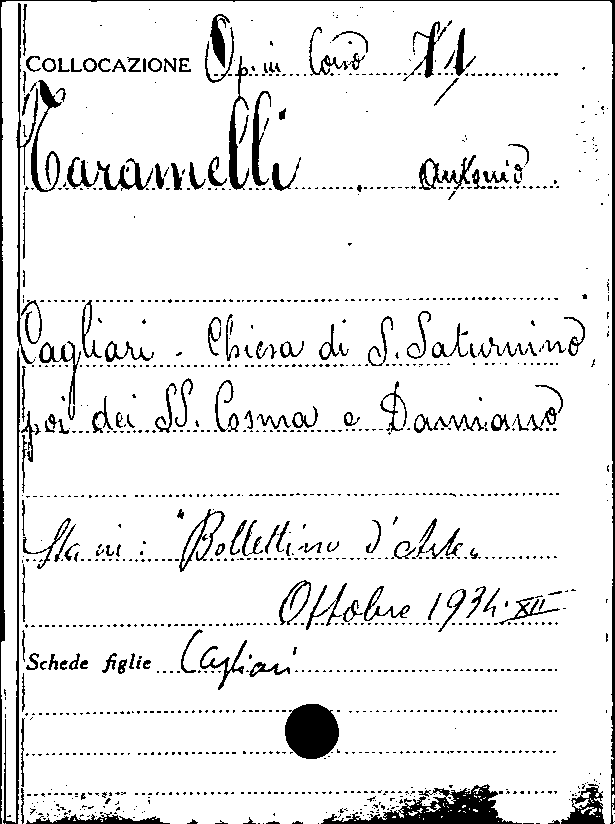 COLLOCAZIONE Op. in Corso
Taramelli, Antonio.
Cagliari - Chiesa di S. Saturnino,
poi dei SS. Cosma e Damiano
Sta in: "Bollettino d'Arte„
Ottobre 1934-XII
Schede figlie Cagliari